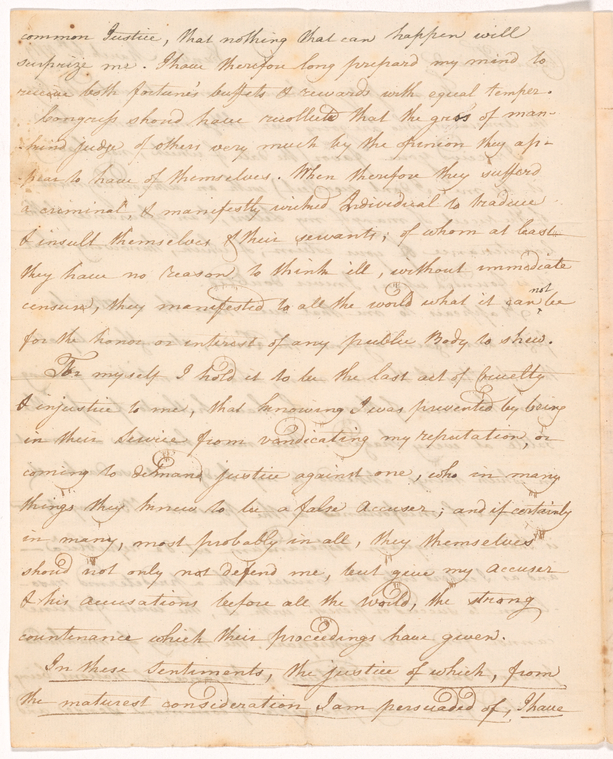 common Justice, that nothing that can happen will
surprize me. I have therefore long prepard my mind to
receive both fortune's buffets & rewards with equal temper.
Congress should have recollected that the gross of man-
kind judge of others very much by the opinion they ap-
pear to have of themselves. When therefore they sufferd
a criminal, & manifestly wicked Individual to traduce
& insult themselves & their servants; of whom at least
they have no reason to think ill, without immediate
censure, they manifested to all the world what it can not be
for the honor or interest of any public Body to shew.
For myself I hold it to be the last act of Cruelty
& injustice to me, that knowing I was prevented by being
in their Service from vindicating my reputation, or
coming to demand justice against one, who in many
things they knew to be a false accuser; and if certainly
in many, most probably in all, they themselves
should not only not defend me, but give my accuser
& his accusations before all the world, the strong
countenance which their proceedings have given.
In these Sentiments, the justice of which, from
the maturest consideration I am persuaded of, I have